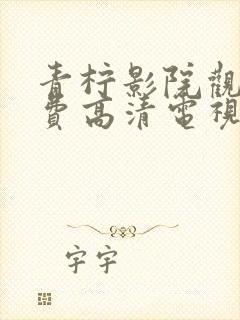 青柠影院觀
費高清電視
字字